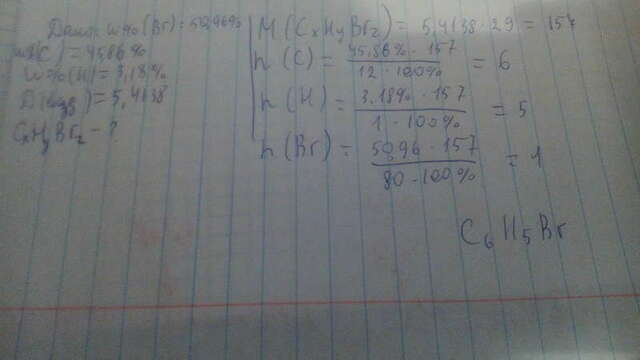 Дано: W%(Br) = 50,96%
W%(C) = 45,86%
W%(H) = 3,18%
D(возд) = 5,4138
CxHyBrz - ?
M(CxHyBrz) = 5,4138 · 29 = 157
n(C) = 45,86% · 157 / 12 · 100% = 6
n(H) = 3,18% · 157 / 1 · 100% = 5
n(Br) = 50,96 · 157 / 80 · 100% = 1
C6H5Br